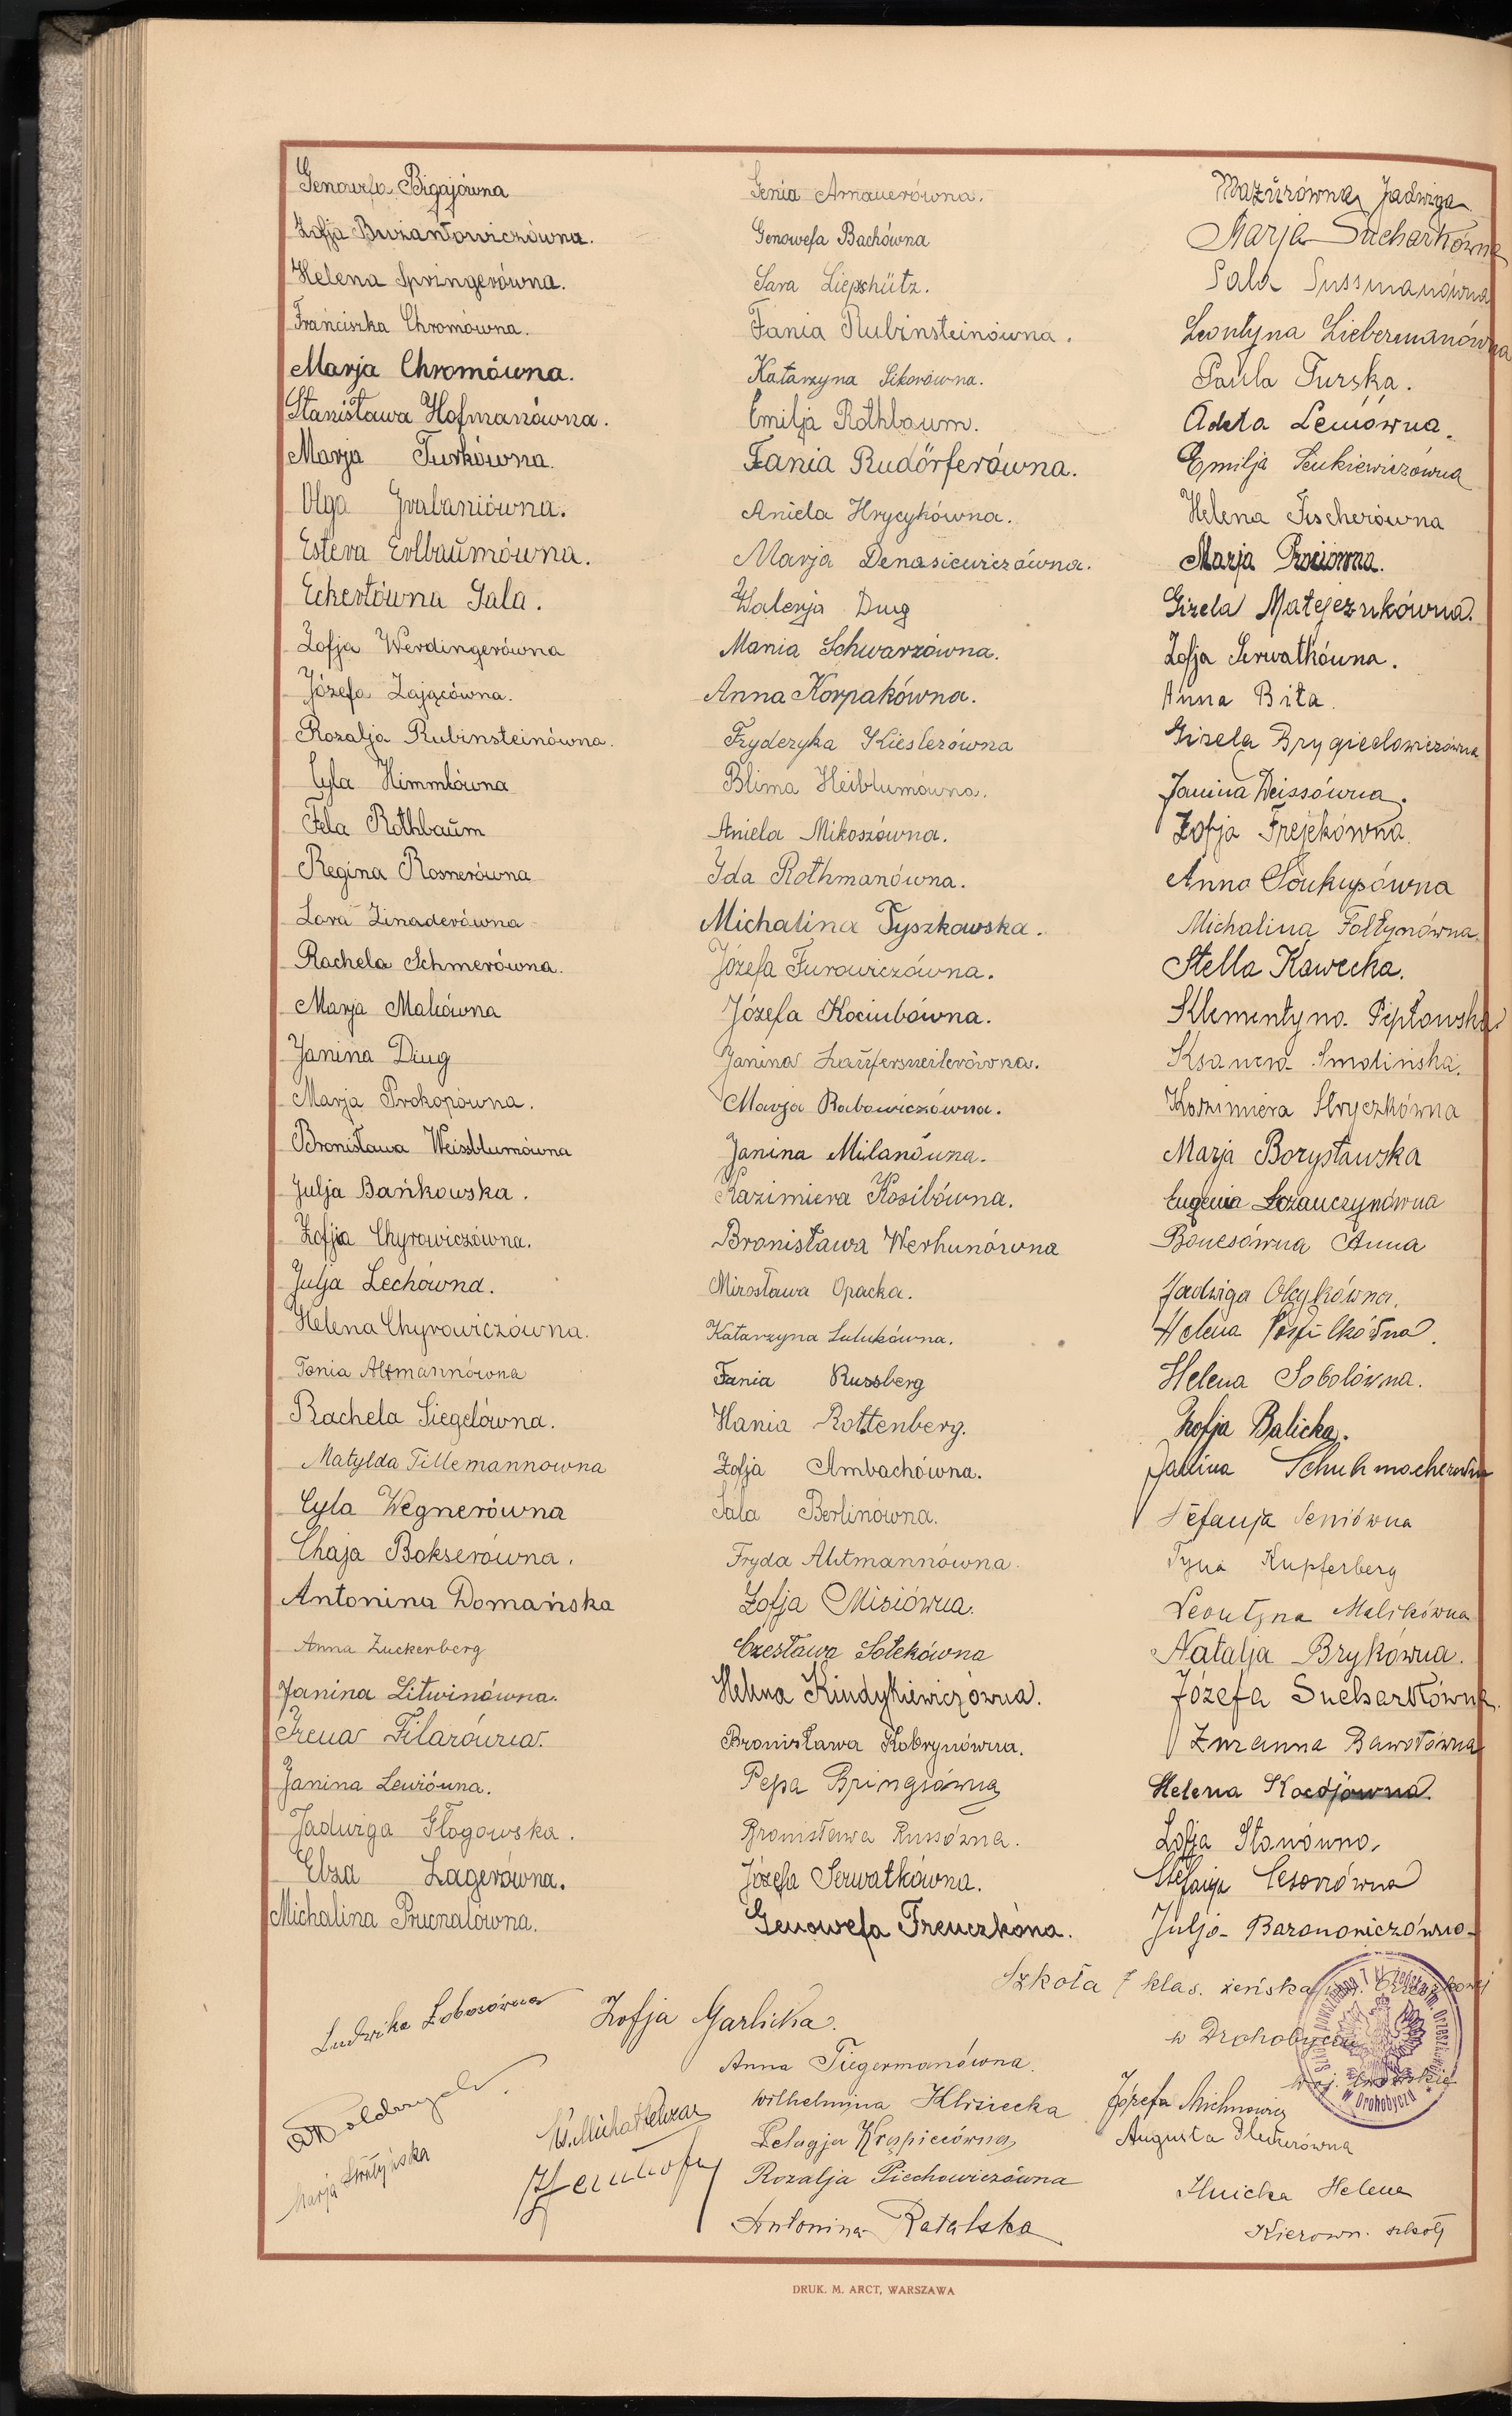 Genowefa Bigajówna
Zofja Bużantowiczówna.
Helena Springerówna.
Franciszka Chromówna.
Marja Chromówna.
Stanisława Hofmanówna.
Marja Turkówna.
Olga Grabaniówna.
Estera Erlbaumówna.
Eckertówna Sala.
Zofja Werdingerówna
Józefa Zającówna.
Rozalja Rubinsteinówna.
Cyla Himmlówna
Fela Rothbaum
Regina Rosnerówna
Lora Zinaderówna
Rachela Schmerówna.
Marja Malcówna
Janina Diug
Marja Prokopówna.
Bronisława Weissblumówna
Julja Bańkowska.
Zofja Chyrowiczówna.
Julja Lechówna.
Helena Chyrowiczówna.
Tonia Altmannówna
Rachela Siegelówna.
Matylda Tillemannowna
Cyla Wegnerówna
Chaja Bokserówna.
Antonina Domańska
Anna Zuckerberg
Janina Litwinówna.
Irena Filarówna.
Janina Lewiówna.
Jadwiga Głogowska.
Elza Lagerówna.
Michalina Prucnalówna.
Genia Amauerówna.
Genowefa Bachówna
Sara Liepschütz.
Fania Rubinsteinówna.
Katarzyna Sikorówna.
Emilja Rothbaum.
Fania Rudörferówna.
Aniela Hrycykówna.
Marja Denasiewiczówna.
Walerja Dług
Mania Schwarzówna.
Anna Korpakówna.
Fryderyka Kieslerówna
Blima Heiblumówna.
Aniela Mikoszówna.
Ida Rothmanówna.
Michalina Tyszkowska.
Józefa Furowiczówna.
Józefa Kociubówna.
Janina Laufersweilerówna.
Marja Rabowiczówna.
Janina Milanówna.
Kazimiera Kosibówna.
Bronisława Werhunówna
Mirosława Opacka.
Katarzyna Lulukówna.
Fania Russberg
Hania Rottenberg.
Zofja Ambachówna.
Sala Berlinówna.
Fryda Altmannówna.
Zofja Misiówna.
Czesława Sołekówna
Helena Kindykiewiczówna.
Bronisława Kobrynówna.
Pepa Bringsówna
Bronisława Russówna.
Józefa Serwatkówna.
Genowefa Frenczkóna.
Mazurówna Jadwiga
Marja Sucharkówna
Sala Sussmanówna
Leontyna Liebermanówna
Paula Turska.
Adela Lewówna.
Emilja Sinkiewiczówna
Helena Fischerówna
Marja Prociówna.
Gizela Matejeznkówna.
Zofja Serwatkówna.
Anna Biła.
Gizela Brygiedowiczówna
Janina Weissówna.
Zofja Frejekówna.
Anna Soukupówna
Michalina Foltynówna.
Stella Kawecka.
Klementyna Pepłowska
Ksawera Smolińska.
Kazimiera Stryczkówna
Marja Borysławska
Eugenia Łozanczynówna
Bonesówna Anna
Jadwiga Olcykówna.
Helena
Helena Sobolówna.
Zofja Balicka.
Janina Schuhmacherówna
Stefanja Seniówna
Tyna Kupferberg
Leontyna Malikówna
Natalja Brykówna.
Józefa Sucharkówna.
Zuzanna Bawołówna
Helena
Zofja Stanówna,
Stefanja Cesonówna
Julja Baranowiczówna
Szkoła 7 klas. żeńska im. Orzeszkowej
w Drohobyczu
woj. lwowskie
Ludwika Lobosówna
Zofja Garlicka.
Anna Tiegermanówna.
Wilhelmina Klisiecka
Pelagja Krąpiecówna
Rozalja Piechowiczówna
Antonina Ratalska
Józefa Michnowicz
Augusta
Ilnicka Helena
Kierown. szkoły
Marja
DRUK. M. ARCT, WARSZAWA